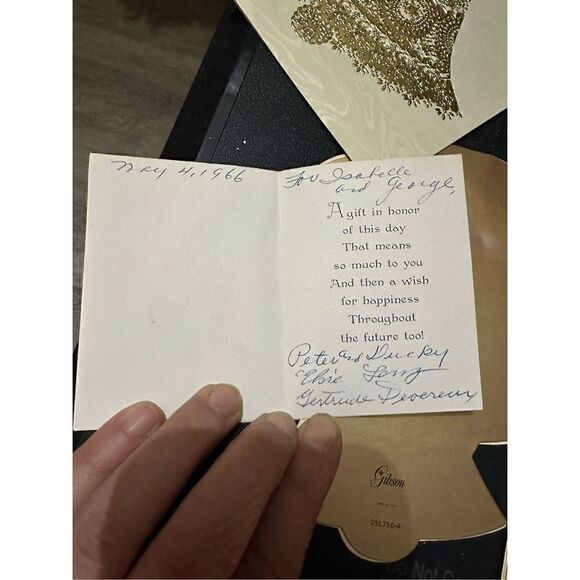 May 4, 1966
For Isabelle
and George,
A gift in honor
of this day
That means
so much to you
And then a wish
for happiness
Throughout
the future too!
Peter and Ducky
Elsie
Gertrude Devereux
Gibson
75L750-4
Do Not